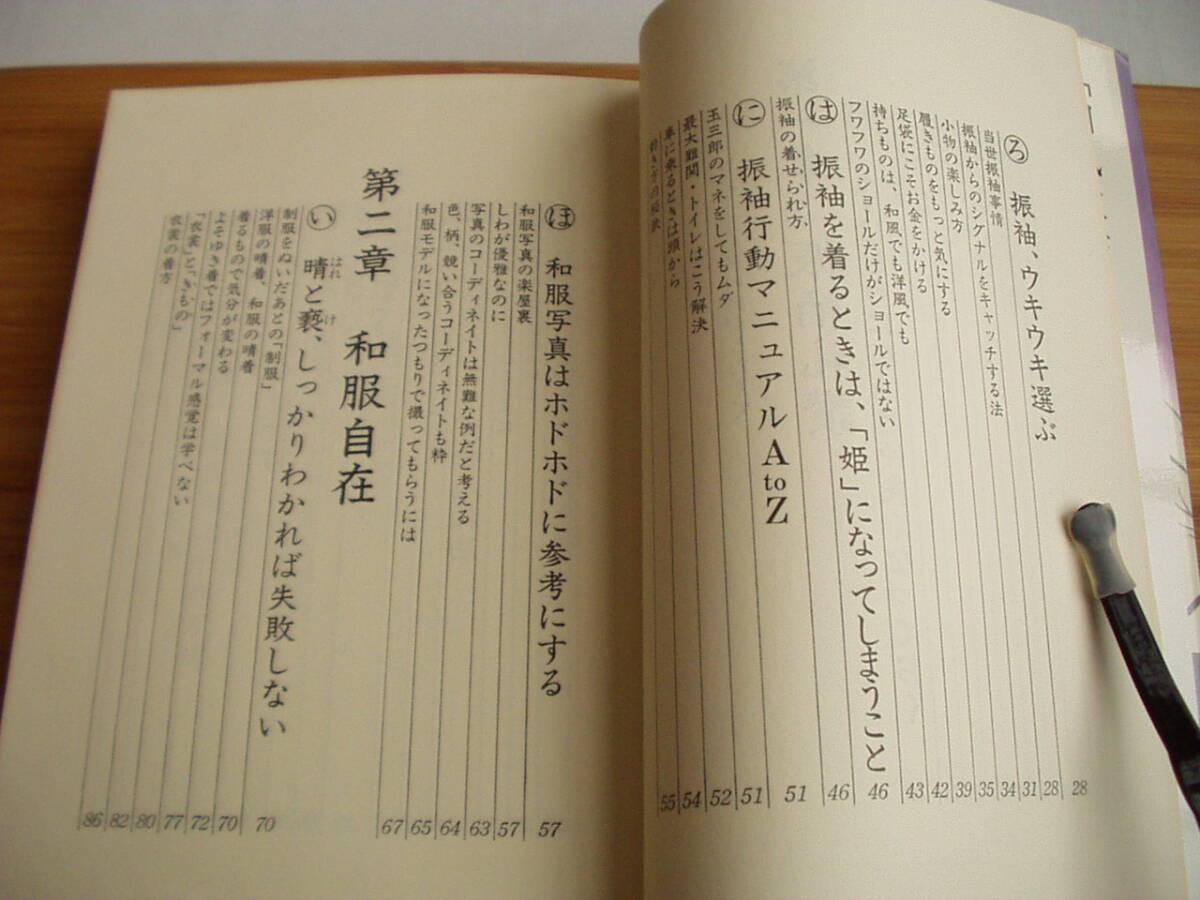 ろ 振袖、ウキウキ選ぶ 28
当世振袖事情 28
振袖からのシグナルをキャッチする法 31
小物の楽しみ方 34
履きものをもっと気にする 35
足袋にこそお金をかける 39
持ちものは、和風でも洋風でも 42
フワフワのショールだけがショールではない 43
は 振袖を着るときは、「姫」になってしまうこと 46
振袖の着せられ方 46
に 振袖行動マニュアルA to Z 51
玉三郎のマネをしてもムダ 51
最大難関・トイレはこう解決 52
車に乗るときは頭から 54
55
ほ 和服写真はホドホドに参考にする 57
和服写真の楽屋裏 57
しわが優雅なのに 63
写真のコーディネイトは無難な例だと考える 64
色、柄、競い合うコーディネイトも粋 65
和服モデルになったつもりで撮ってもらうには 67
第二章 和服自在
い 晴（はれ）と褻（け）、しっかりわかれば失敗しない 70
制服をぬいだあとの「制服」 70
洋服の晴着、和服の晴着 72
着るもので気分が変わる 77
よそゆき着ではフォーマル感覚は学べない 80
「衣裳」と「きもの」 82
衣裳の着方 86